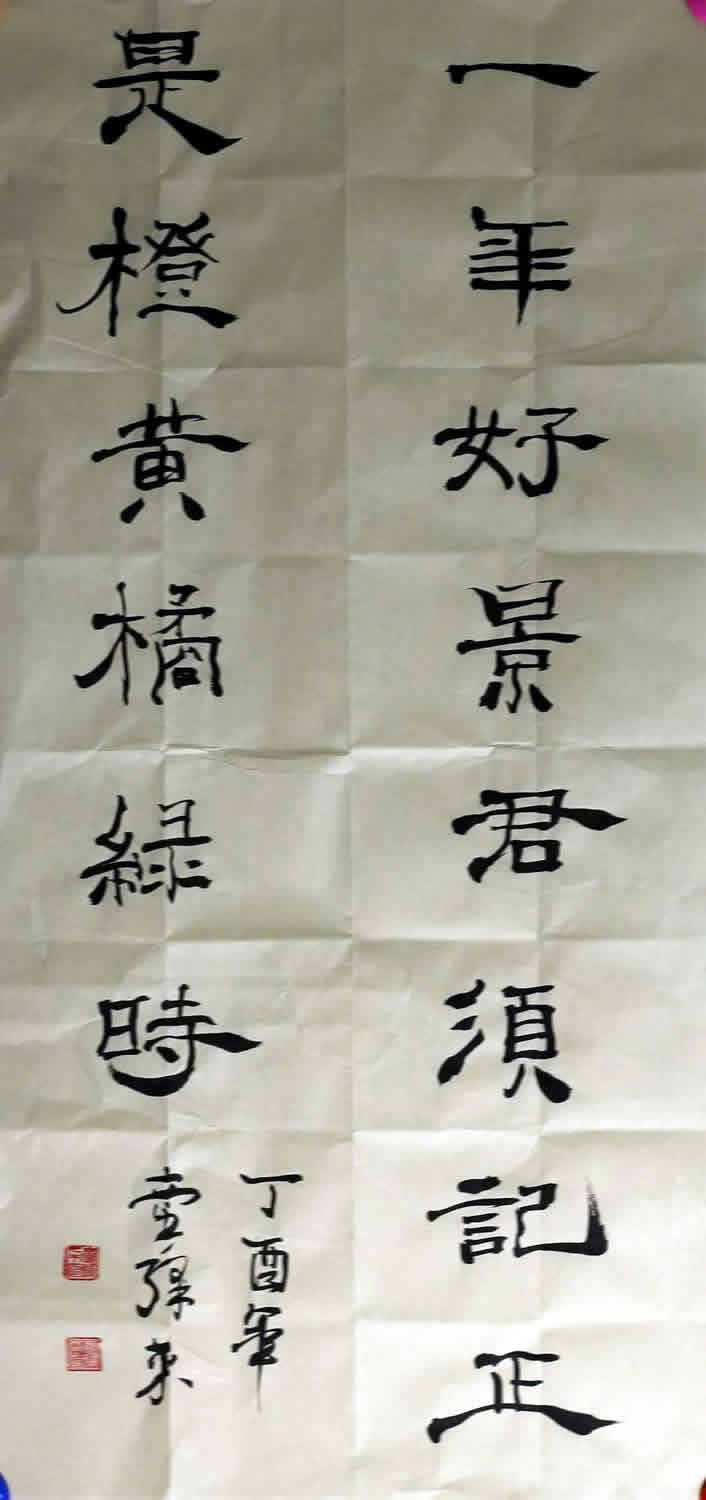 一年好景君須記正
是橙黄橘綠時
丁酉年